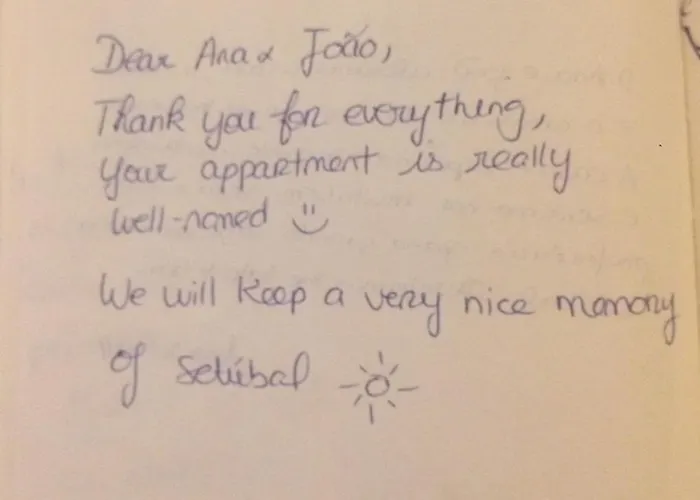 Dear Ana & João,
Thank you for everything,
your appartment is really
well-named
We will keep a very nice memory
of Setúbal